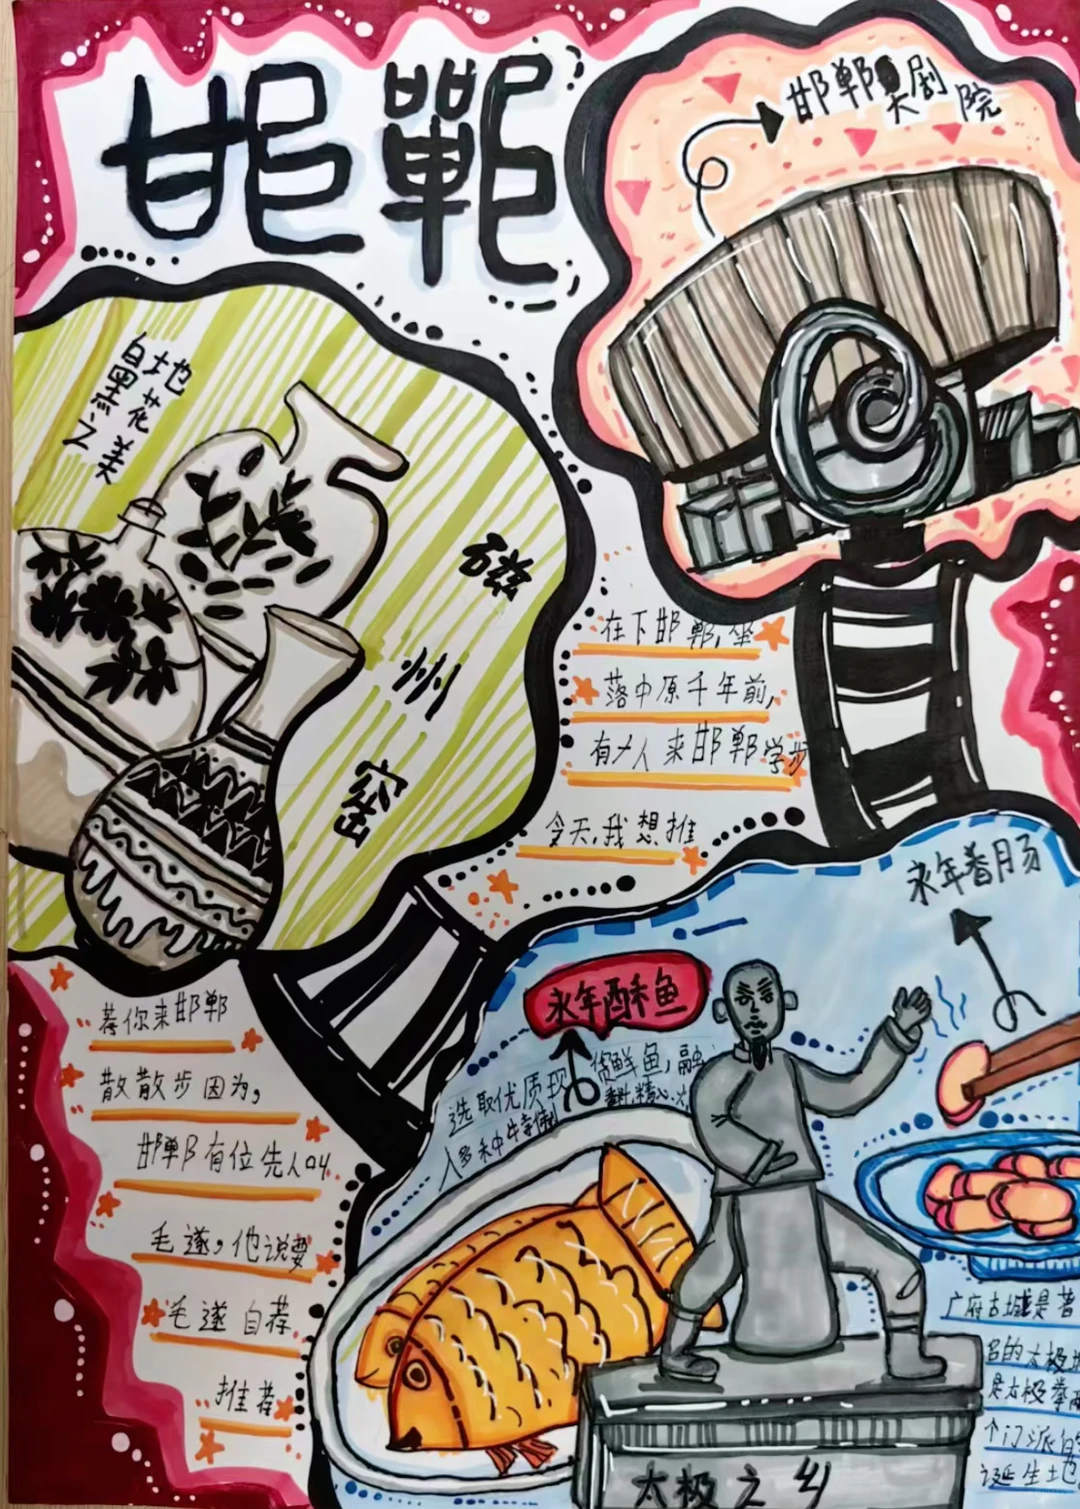 邯鄲
邯郸大剧院
白地黑花之美
磁州窑
在下邯郸,坐
落中原千年前,
有个人来邯郸学步
今天,我想推
荐你来邯郸
散散步因为,
邯郸有位先人叫
毛遂,他说要
毛遂自荐
推荐
永年香肠
永年酥鱼
选取优质现
货鲜鱼,融
入多种
精心
广府古城是著
名的太极
是太极拳两
个门派的
诞生地
太极之乡